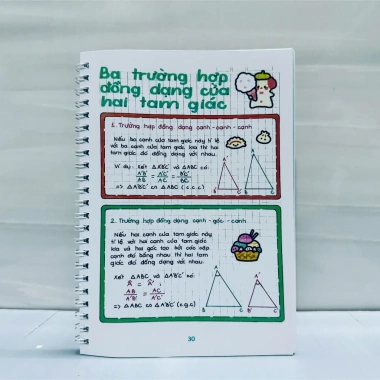 Ba trường hợp
đồng dạng của
hai tam giác
1. Trường hợp đồng dạng cạnh - cạnh - cạnh
Nếu ba cạnh của tam giác này tỉ lệ
với ba cạnh của tam giác kia thì hai
tam giác đó đồng dạng với nhau.
Ví dụ: Xét ΔA'B'C' và ΔABC có:
A'B'/AB = A'C'/AC = B'C'/BC
=> ΔA'B'C' ∽ ΔABC (c.c.c)
2. Trường hợp đồng dạng cạnh - góc - cạnh
Nếu hai cạnh của tam giác này
tỉ lệ với hai cạnh của tam giác
kia và hai góc tạo bởi các cặp
cạnh đó bằng nhau thì hai tam
giác đó đồng dạng với nhau.
Xét ΔABC và ΔA'B'C' có:
Â = Â'
AB/A'B' = AC/A'C'
=> ΔABC ∽ ΔA'B'C' (c.g.c)
A
B C
A'
B' C'
30